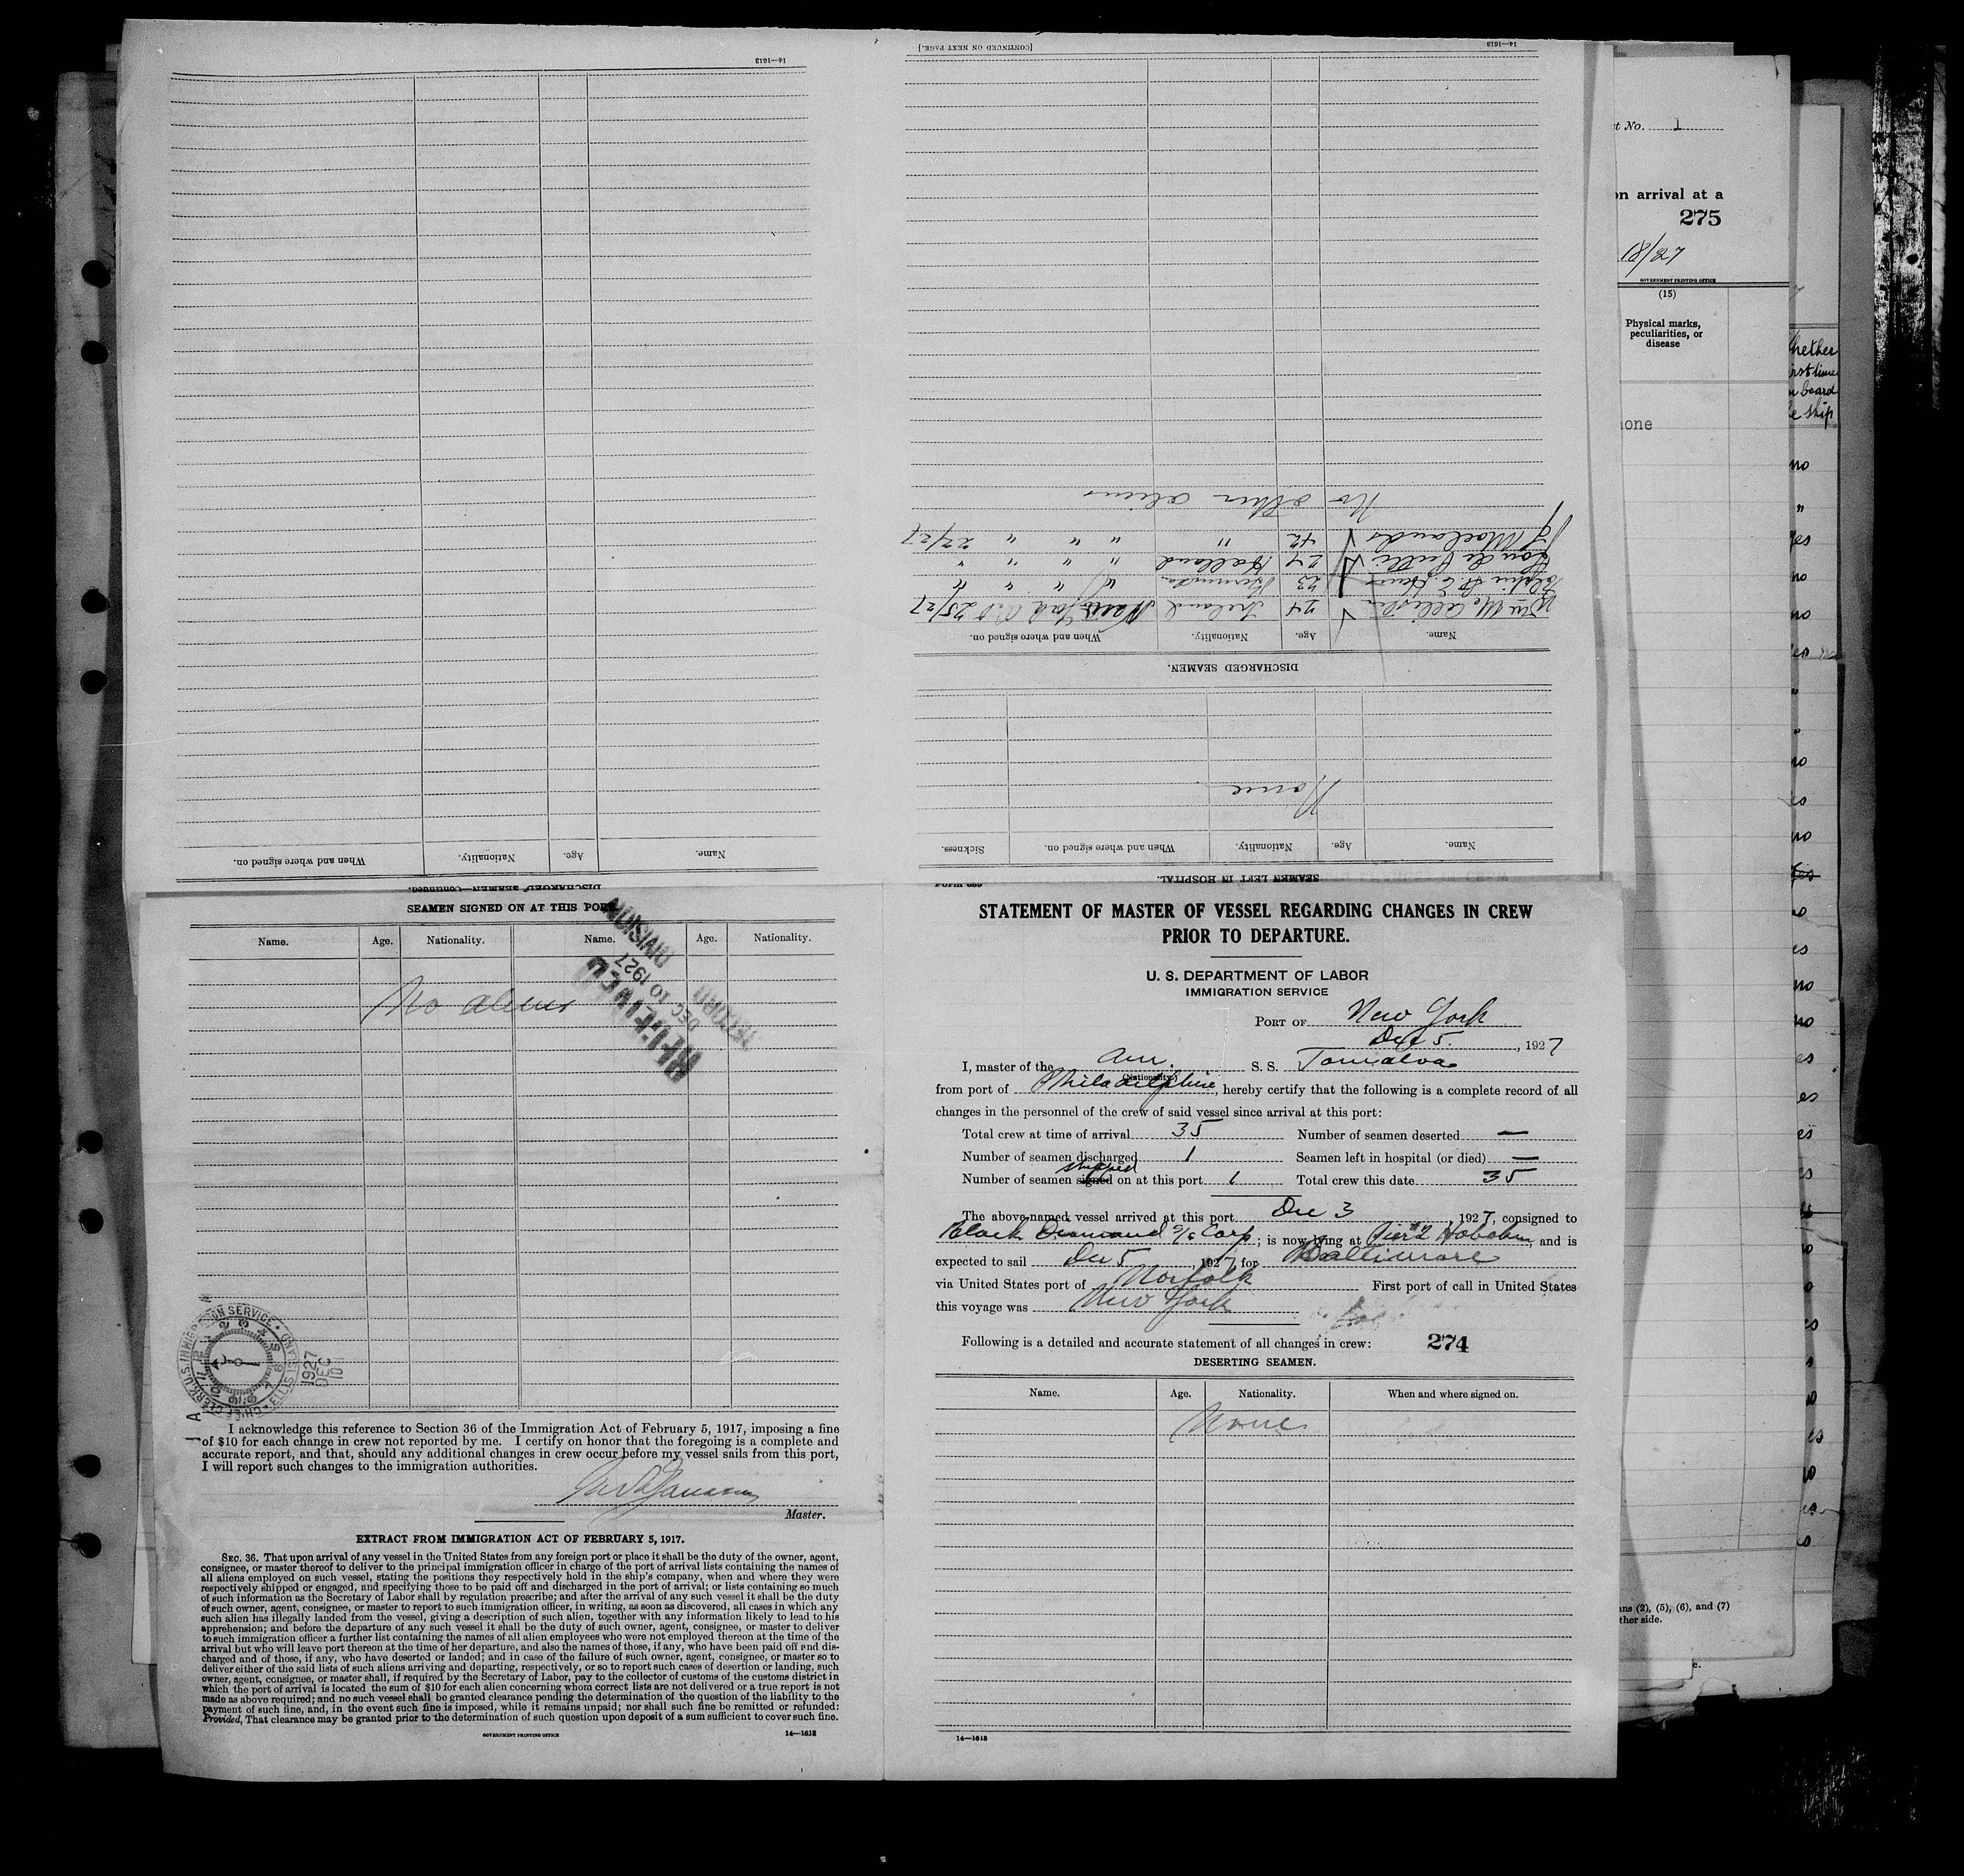 [CONTINUED ON NEXT PAGE.]
14—1613
14—1613
SEAMEN LEFT IN HOSPITAL.
Name. Age. Nationality. When and where signed on. Sickness.
None
DISCHARGED SEAMEN.
Name. Age. Nationality. When and where signed on.
Wm McCallister 24 Ireland New York Oct 25/27
23 Bermuda " " " "
27 Holland " " " "
42 " " " " 22/27
No other aliens
DISCHARGED SEAMEN—Continued.
Name. Age. Nationality. When and where signed on.
SEAMEN SIGNED ON AT THIS PORT
Name. Age. Nationality. Name. Age. Nationality.
No aliens
RECEIVED
DEC 10 1927
RECORD DIVISION
CHIEF CLERK U.S. IMMIGRATION SERVICE • ELLIS ISLAND
1927
DEC
10
I acknowledge this reference to Section 36 of the Immigration Act of February 5, 1917, imposing a fine
of $10 for each change in crew not reported by me. I certify on honor that the foregoing is a complete and
accurate report, and that, should any additional changes in crew occur before my vessel sails from this port,
I will report such changes to the immigration authorities.
Master.
EXTRACT FROM IMMIGRATION ACT OF FEBRUARY 5, 1917.
SEC. 36. That upon arrival of any vessel in the United States from any foreign port or place it shall be the duty of the owner, agent,
consignee, or master thereof to deliver to the principal immigration officer in charge of the port of arrival lists containing the names of
all aliens employed on such vessel, stating the positions they respectively hold in the ship's company, when and where they were
respectively shipped or engaged, and specifying those to be paid off and discharged in the port of arrival; or lists containing so much
of such information as the Secretary of Labor shall by regulation prescribe; and after the arrival of any such vessel it shall be the duty
of such owner, agent, consignee, or master to report to such immigration officer, in writing, as soon as discovered, all cases in which any
such alien has illegally landed from the vessel, giving a description of such alien, together with any information likely to lead to his
apprehension; and before the departure of any such vessel it shall be the duty of such owner, agent, consignee, or master to deliver
to such immigration officer a further list containing the names of all alien employees who were not employed thereon at the time of the
arrival but who will leave port thereon at the time of her departure, and also the names of those, if any, who have been paid off and dis-
charged and of those, if any, who have deserted or landed; and in case of the failure of such owner, agent, consignee, or master so to
deliver either of the said lists of such aliens arriving and departing, respectively, or so to report such cases of desertion or landing, such
owner, agent, consignee, or master shall, if required by the Secretary of Labor, pay to the collector of customs of the customs district in
which the port of arrival is located the sum of $10 for each alien concerning whom correct lists are not delivered or a true report is not
made as above required; and no such vessel shall be granted clearance pending the determination of the question of the liability to the
payment of such fine, and, in the event such fine is imposed, while it remains unpaid; nor shall such fine be remitted or refunded:
Provided, That clearance may be granted prior to the determination of such question upon deposit of a sum sufficient to cover such fine.
GOVERNMENT PRINTING OFFICE
14—1613
Form 689
STATEMENT OF MASTER OF VESSEL REGARDING CHANGES IN CREW
PRIOR TO DEPARTURE.
U. S. DEPARTMENT OF LABOR
IMMIGRATION SERVICE
PORT OF New York
Dec 5, 1927
I, master of the Am. S. S. Tomalva
(Nationality.)
from port of Philadelphia, hereby certify that the following is a complete record of all
changes in the personnel of the crew of said vessel since arrival at this port:
Total crew at time of arrival 35 Number of seamen deserted —
Number of seamen discharged 1 Seamen left in hospital (or died) —
shipped
Number of seamen signed on at this port 1 Total crew this date 35
The above-named vessel arrived at this port Dec 3, 1927, consigned to
Black Diamond S/S Corp; is now lying at Pier #2 Hoboken, and is
expected to sail Dec 5, 1927, for Baltimore
via United States port of Norfolk First port of call in United States
this voyage was New York
Following is a detailed and accurate statement of all changes in crew: 274
DESERTING SEAMEN.
Name. Age. Nationality. When and where signed on.
None
14—1613
t No. 1
on arrival at a
275
18/27
GOVERNMENT PRINTING OFFICE
(15)
Physical marks,
peculiarities, or
disease
one
ns (2), (5), (6), and (7)
ther side.
hether
irst time
n board
e ship
no
"
yes
no
no